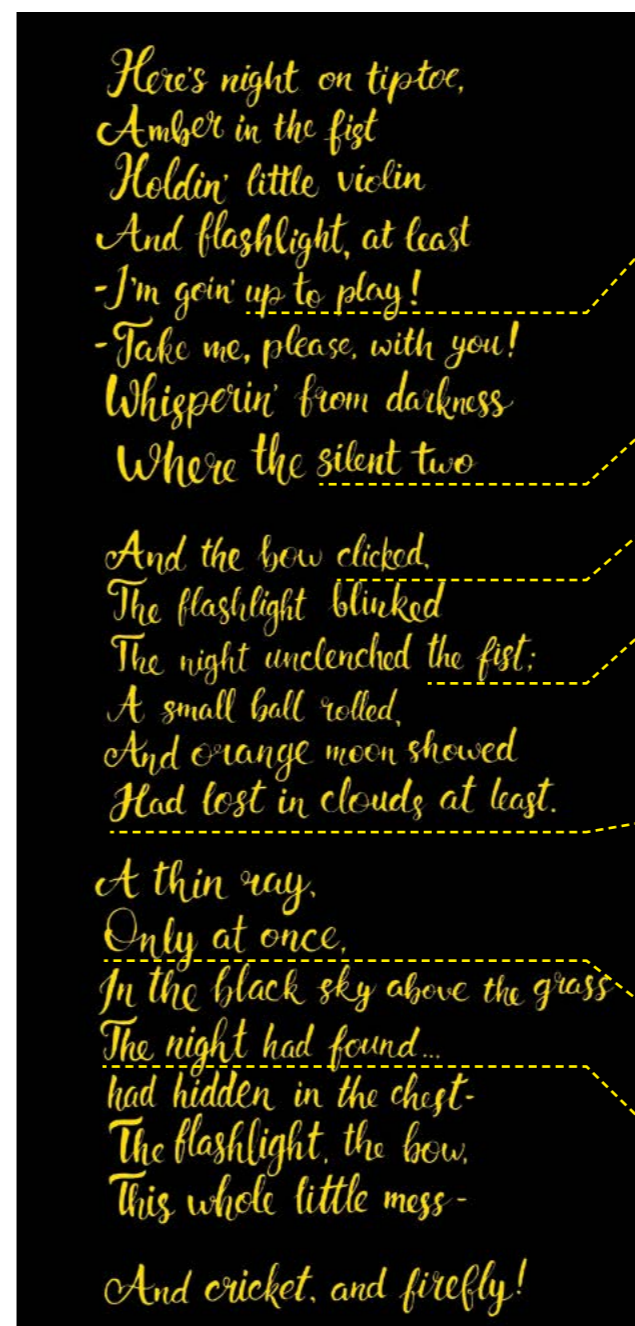 Here's night on tiptoe,
Amber in the fist
Holdin' little violin
And flashlight, at least
-I'm goin' up to play!
-Take me, please, with you!
Whisperin' from darkness
Where the silent two
And the bow clicked,
The flashlight blinked
The night unclenched the fist;
A small ball rolled,
And orange moon showed
Had lost in clouds at least.
A thin ray,
Only at once,
In the black sky above the grass
The night had found...
had hidden in the chest-
The flashlight, the bow,
This whole little mess -
And cricket, and firefly!